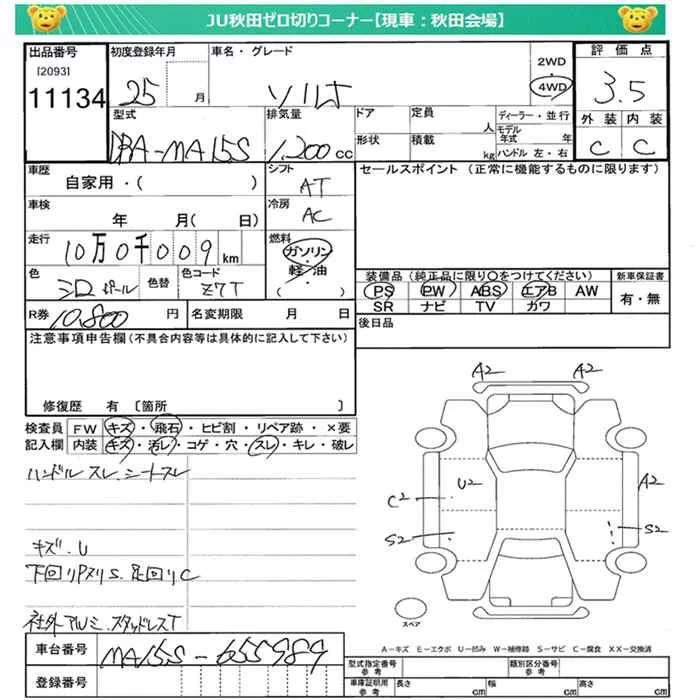 JU秋田ゼロ切りコーナー【現車:秋田会場】
出品番号 初度登録年月 車名・グレード 2WD 評価点
[2093]
11134 25 月 ソリオ 4WD 3.5
型式 排気量 ドア 定員 人 ディーラー・並行 外装 内装
DBA-MA15S 1,200cc 形状 積載 kg モデル年式 年 C C
ハンドル 左・右
車歴 シフト セールスポイント(正常に機能するものに限ります)
自家用・( ) AT
車検 冷房
年 月( 日) AC
走行 燃料
10万0千009km ガソリン
色 色替 色コード 軽・油
シロパール Z7T ( )
装備品(純正品に限り○をつけてください) 新車保証書
PS PW ABS エアB AW 有・無
SR ナビ TV カワ
R券 10,800円 名変期限 月 日 後日品
注意事項申告欄(不具合内容等は具体的に記入して下さい)
修復歴 有 〔箇所 〕
検査員 FW キズ・飛石・ヒビ割・リペア跡・×要
記入欄 内装 キズ・汚レ・コゲ・穴・スレ・キレ・破レ
ハンドルスレ、シートスレ
キズ.U
下回りPスリS.足回りC
社外アルミ.スタッドレスT
A2 A2
U2 A2
C2
S2 S2
スペア
A-キズ E-エクボ U-凹み W-補修跡 S-サビ C-腐食 XX-交換済
車台番号 MA15S-655989
登録番号
型式指定番号 参考 類別区分番号 参考
車庫証明用 参考 長さ cm 幅 cm 高さ cm